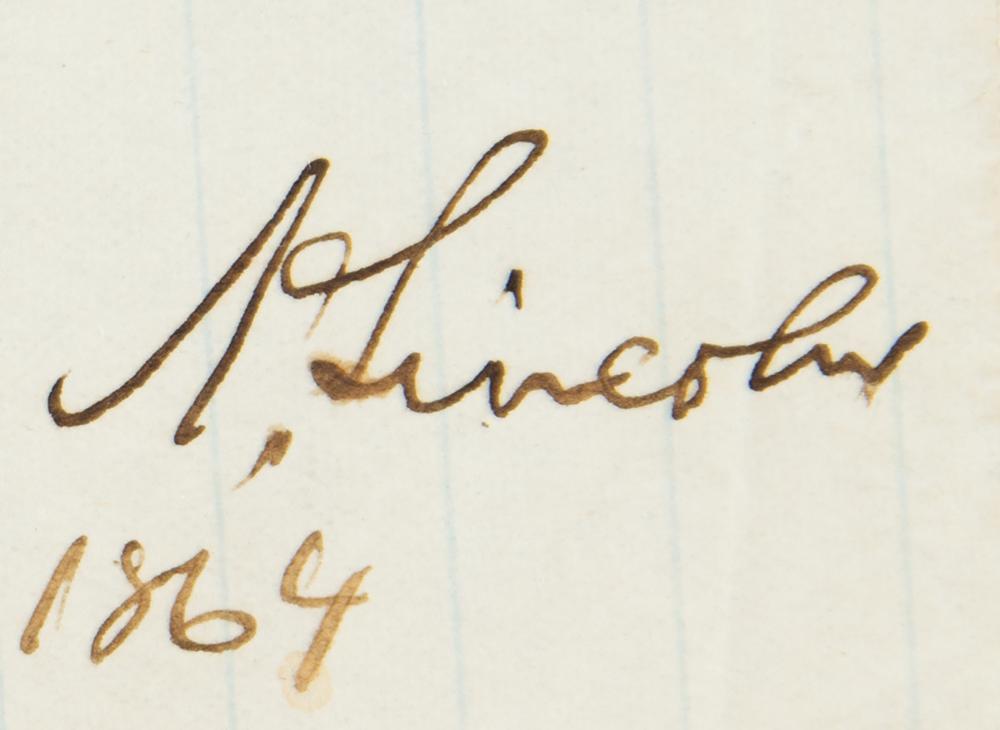 A. Lincoln
1864